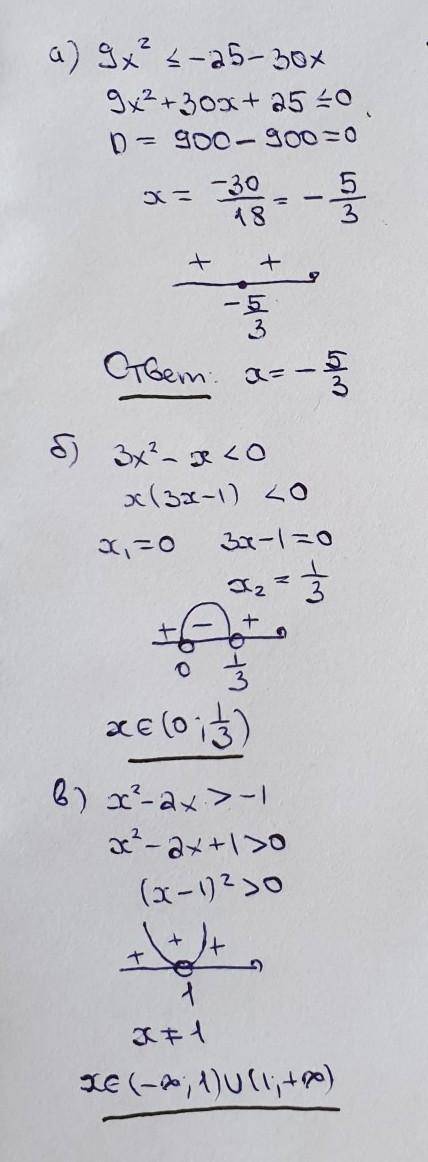 а) 9x² ≤ -25 - 30x
9x² + 30x + 25 ≤ 0
D = 900 - 900 = 0
x = -30/18 = -5/3
+ +
-5/3
Ответ: x = -5/3
б) 3x² - x < 0
x(3x-1) < 0
x₁ = 0 3x-1 = 0
x₂ = 1/3
+ - +
0 1/3
x ∈ (0; 1/3)
в) x² - 2x > -1
x² - 2x + 1 > 0
(x-1)² > 0
+ + +
1
x ≠ 1
x ∈ (-∞; 1) ∪ (1; +∞)